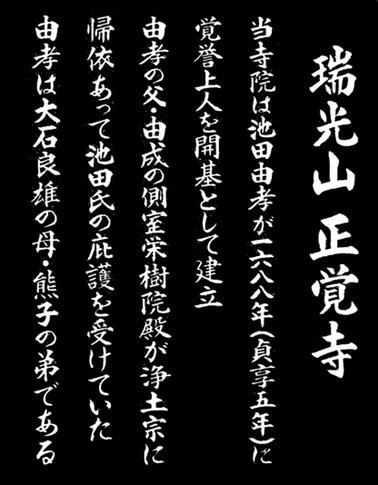 瑞光山 正覚寺
当寺院は池田由孝が一六八八年(貞享五年)に
覚誉上人を開基として建立
由孝の父・由成の側室栄樹院殿が浄土宗に
帰依あって池田氏の庇護を受けていた
由孝は大石良雄の母・熊子の弟である